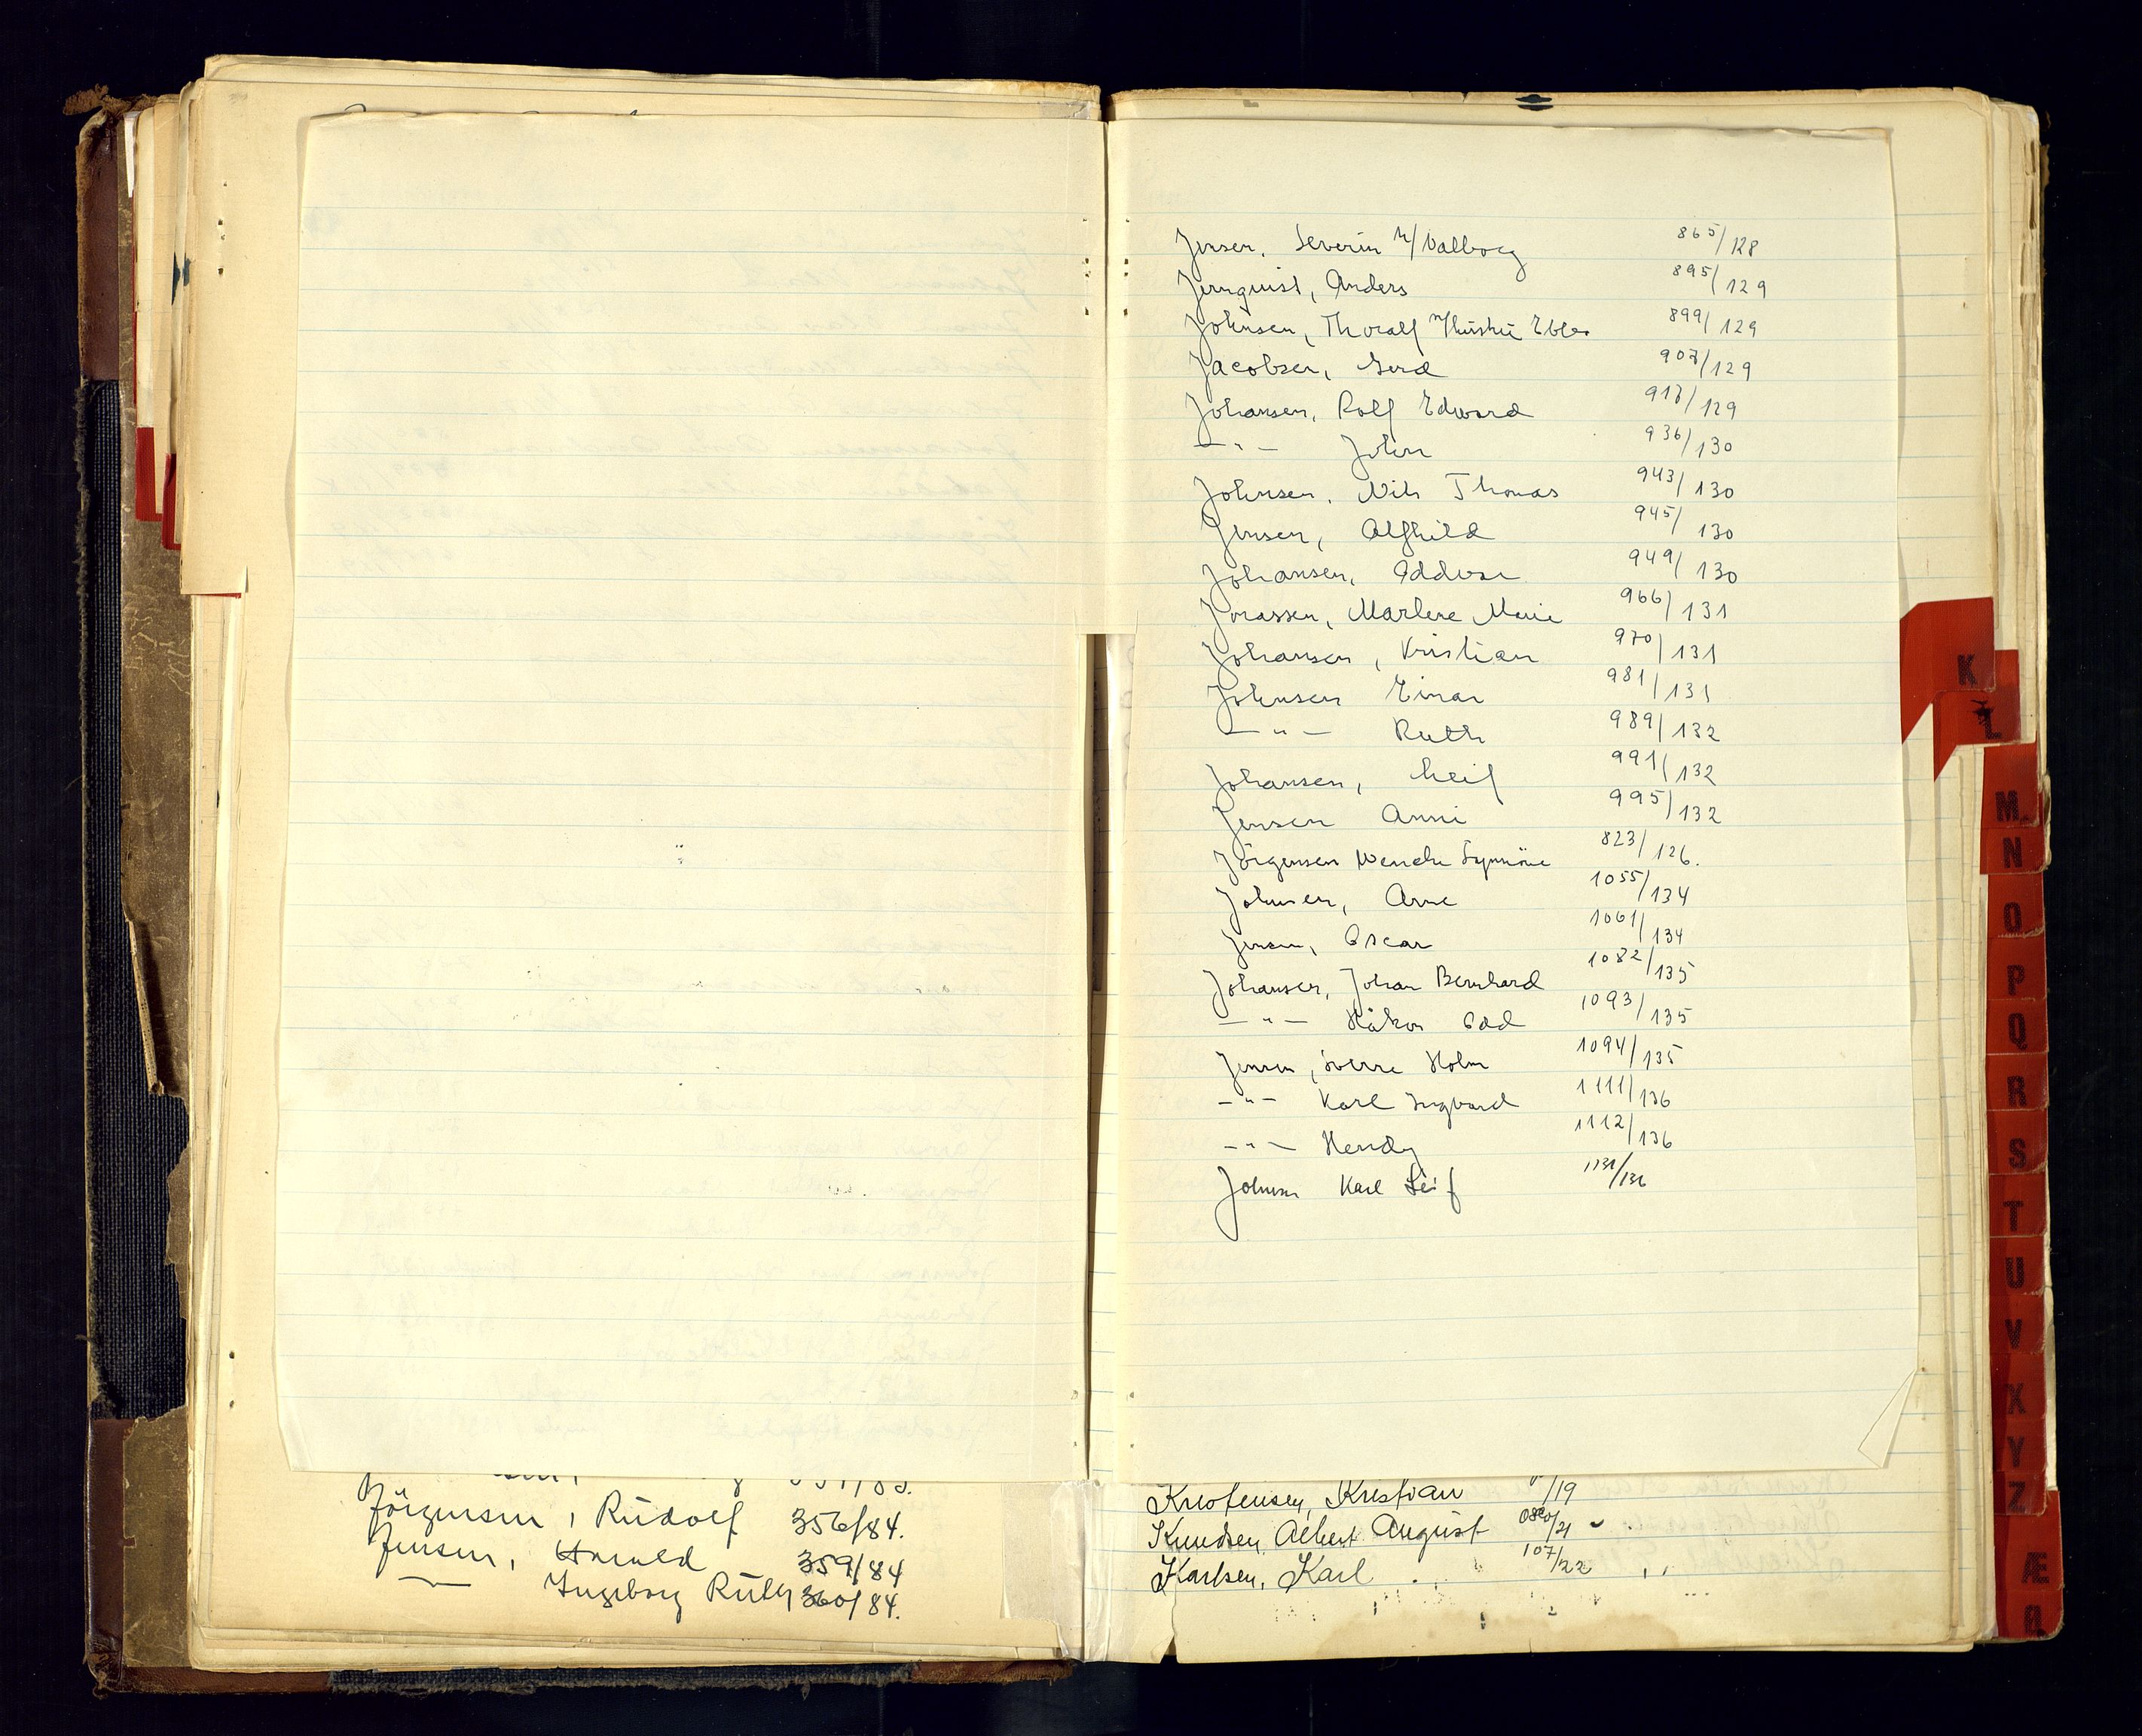 Jörgensen, Rudolf 356/84.
Jensen, Harald 359/84
— Ingeborg Ruth 360/84.
Jensen, Severin m/Valborg 865/128
Jernquist, Anders 895/129
Johnsen, Thoralf m/hustru Ebba 899/129
Jacobsen, Gerd 907/129
Johansen, Rolf Edward 917/129
— " — John 936/130
Johnsen, Nils Thomas 943/130
Jensen, Alfhild 945/130
Johansen, Oddvar 949/130
Jonassen, Marlene Marie 966/131
Johansen, Kristian 970/131
Johnsen Einar 981/131
— " — Ruth 989/132
Johansen, Leif 991/132
Jensen Anni 995/132
Jörgensen Wenche Synnöve 823/126.
Johnsen, Arne 1055/134
Jensen, Oscar 1061/134
Johansen, Johan Bernhard 1082/135
— " — Håkon Odd 1093/135
Jensen, Sverre Holm 1094/135
— " — Karl Ingvard 1111/136
— " — Hendy 1112/136
Johnsen Karl Leif 1131/136
Kristensen, Kristian /19
Knudsen, Albert August /21
Karlsen, Karl 107/22
K
L
M
N
O
P
Q
R
S
T
U
V
X
Y
Z
Æ
Ø